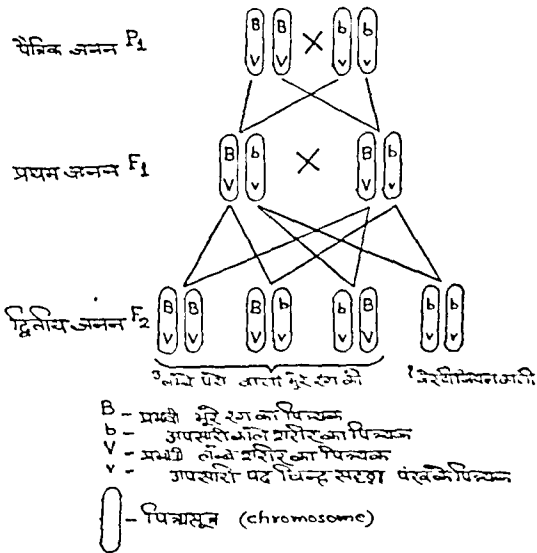 पैत्रिक जनन P1
B B × b b
V V v v
प्रथम जनन F1
B b × B b
V v V v
द्वितीय जनन F2
B B B b b B b b
V V V v v V v v
3 लंबे परों वाली भूरे रंग की
B - प्रभावी भूरे रंग का पित्र्यक
b - अपसारी काले शरीर का पित्र्यक
V - प्रभावी लम्बे शरीर का पित्र्यक
v - अपसारी पद चिन्ह सदृश पंख के पित्र्यक
- पित्र्यसूत्र (chromosome)